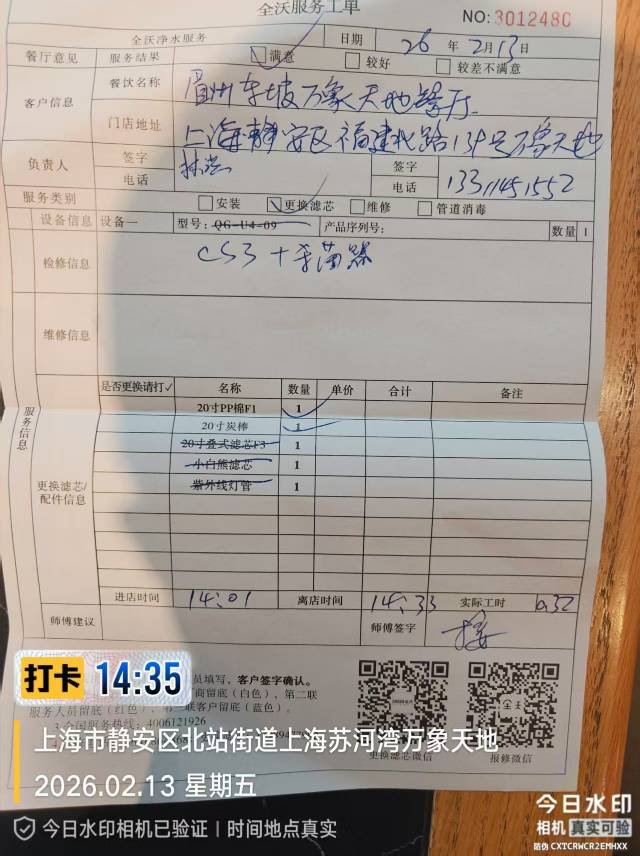 全沃服务工单
NO: 3012480
全沃净水服务 日期 26 年 2 月 13 日
餐厅意见 服务结果 满意 较好 较差不满意
客户信息 餐饮名称 眉州东坡万象天地餐厅
门店地址 上海静安区福建北路134号万象天地
负责人 签字 签字
电话 电话 13311451552
服务类别 安装 更换滤芯 维修 管道消毒
设备信息 设备一 型号: QG-U4-09 产品序列号: 数量 1
检修信息 CS3+杀菌器
维修信息
服务信息
是否更换请打✓ 名称 数量 单价 合计 备注
20寸PP棉F1 1
20寸炭棒 1
20寸叠式滤芯F3 1
小白熊滤芯 1
紫外线灯管 1
更换滤芯/配件信息
进店时间 14:01 离店时间 14:33 实际工时 0.32
师傅建议 师傅签字
员填写,客户签字确认。
商留底(白色),第二联
服务人员留底(红色),第三联客户留底(蓝色)。
3.全国服务热线: 4006121926
更换滤芯微信 报修微信
打卡 14:35
上海市静安区北站街道上海苏河湾万象天地
2026.02.13 星期五
今日水印相机已验证 | 时间地点真实
今日水印
相机 真实可验
防伪 CXTCRWCR2EMHXX